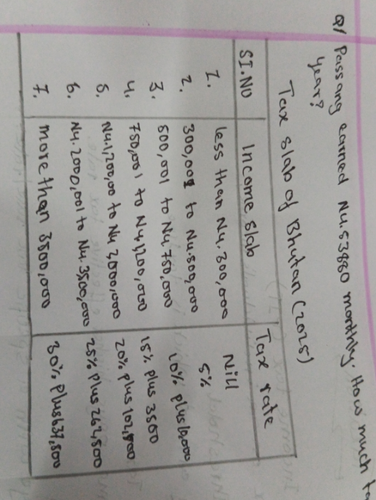 Q/ Passang earned Nu.53880 monthly. How much t
year?
Tax slab of Bhutan (2025)
SI.NO Income slab Tax rate
1. less than Nu.300,000 Nill
2. 300,001 to Nu.500,000 5%
3. 500,001 to Nu.750,000 10% plus 10,000
4. 750,001 to Nu.1,200,000 15% plus 3500
5. Nu.1,200,00 to Nu 2,000,000 20% plus 102,500
6. Nu.2000,001 to Nu.3500,000 25% plus 262,500
7. more than 3500,000 30% plus 637,500